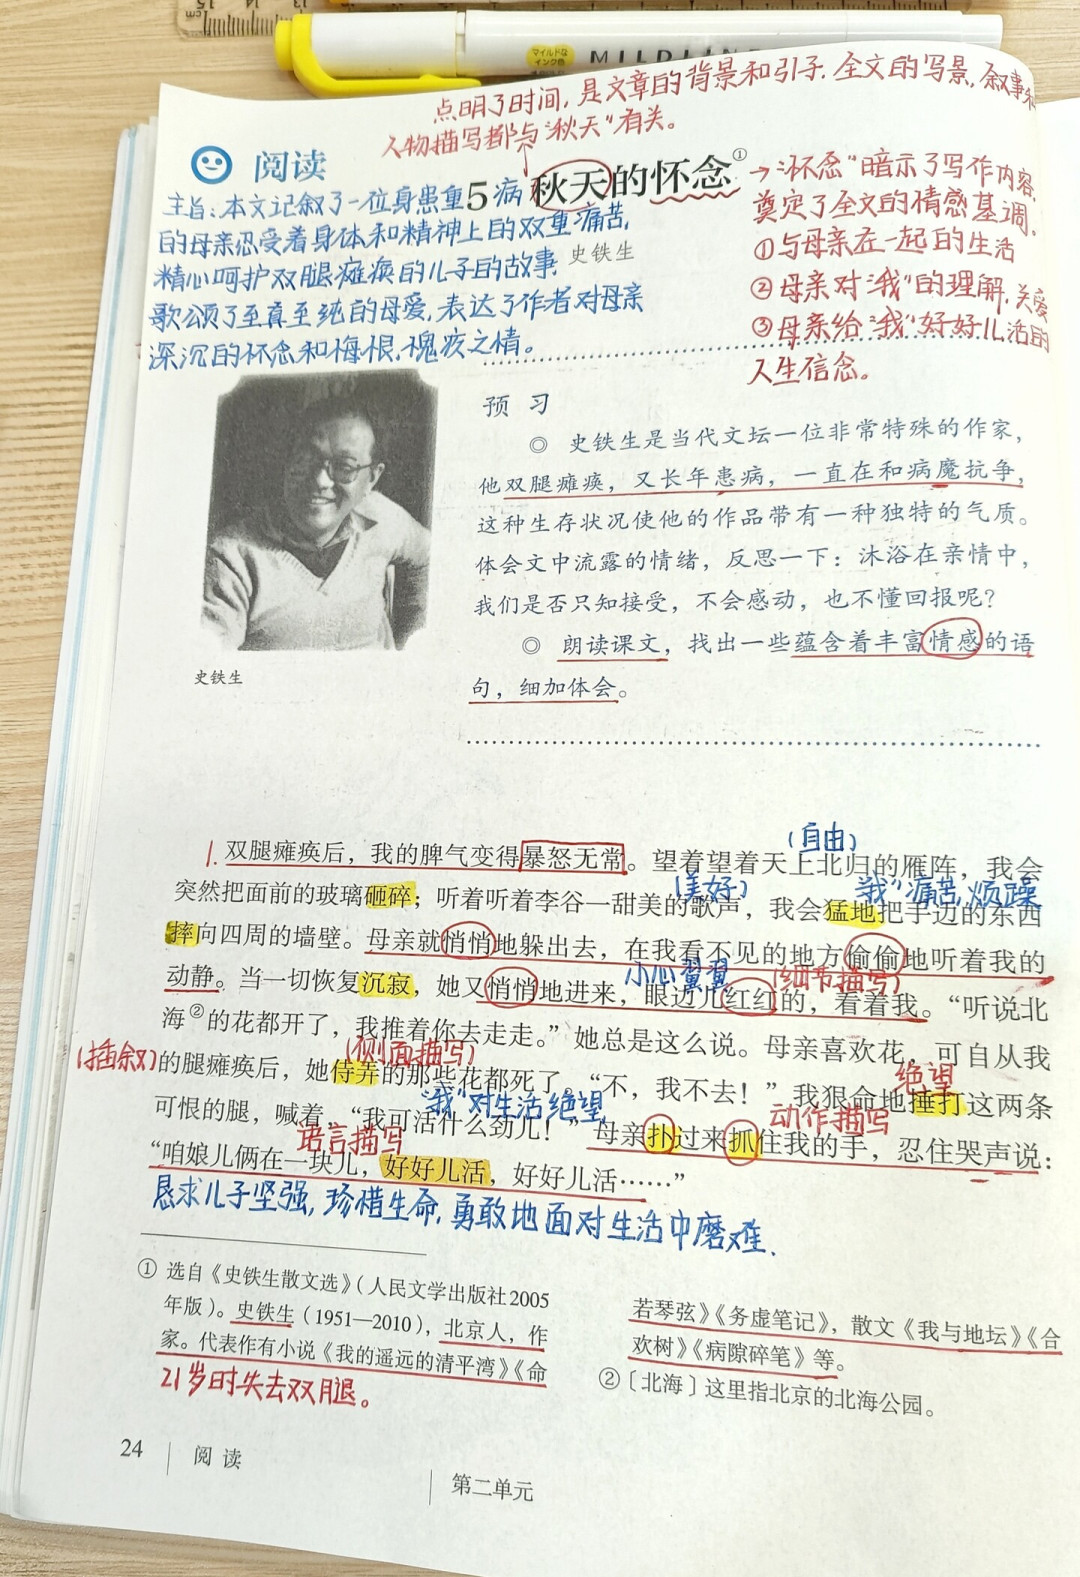 15 14 13
cm
マイルドな
インク色
MILDLINE
点明了时间,是文章的背景和引子.全文的写景,叙事和
人物描写都与"秋天"有关。
阅读
5 秋天的怀念①
史铁生
主旨:本文记叙了一位身患重病
的母亲忍受着身体和精神上的双重痛苦,
精心呵护双腿瘫痪的儿子的故事
歌颂了至真至纯的母爱,表达了作者对母亲
深沉的怀念和悔恨,愧疚之情。
→"怀念"暗示了写作内容,
奠定了全文的情感基调。
①与母亲在一起的生活
②母亲对"我"的理解,关爱
③母亲给"我"好好儿活的
人生信念。
预 习
◎ 史铁生是当代文坛一位非常特殊的作家,
他双腿瘫痪,又长年患病,一直在和病魔抗争,
这种生存状况使他的作品带有一种独特的气质。
体会文中流露的情绪,反思一下:沐浴在亲情中,
我们是否只知接受,不会感动,也不懂回报呢?
◎ 朗读课文,找出一些蕴含着丰富情感的语
句,细加体会。
史铁生
(自由)
1. 双腿瘫痪后,我的脾气变得暴怒无常。望着望着天上北归的雁阵,我会
(美好) "我"痛苦,烦躁
突然把面前的玻璃砸碎;听着听着李谷一甜美的歌声,我会猛地把手边的东西
摔向四周的墙壁。母亲就悄悄地躲出去,在我看不见的地方偷偷地听着我的
小心翼翼 (细节描写)
动静。当一切恢复沉寂,她又悄悄地进来,眼边儿红红的,看着我。“听说北
海②的花都开了,我推着你去走走。”她总是这么说。母亲喜欢花,可自从我
(插叙) (侧面描写) 绝望
的腿瘫痪后,她侍弄的那些花都死了。“不,我不去!”我狠命地捶打这两条
"我"对生活绝望, 动作描写
可恨的腿,喊着,“我可活什么劲儿!”母亲扑过来抓住我的手,忍住哭声说:
语言描写
“咱娘儿俩在一块儿,好好儿活,好好儿活……”
恳求儿子坚强,珍惜生命,勇敢地面对生活中磨难.
① 选自《史铁生散文选》(人民文学出版社2005
年版)。史铁生(1951—2010),北京人,作
家。代表作有小说《我的遥远的清平湾》《命
若琴弦》《务虚笔记》,散文《我与地坛》《合
欢树》《病隙碎笔》等。
② 〔北海〕这里指北京的北海公园。
21岁时失去双腿。
24 阅 读
第二单元